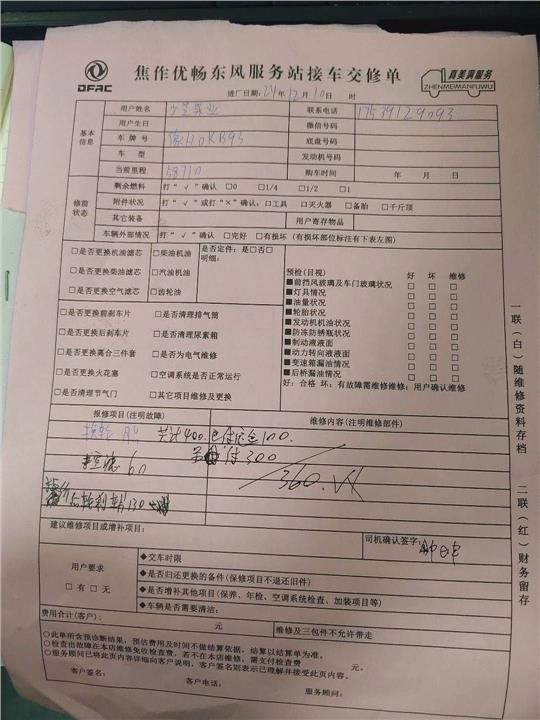 DFAC
焦作优畅东风服务站接车交修单
真美满服务
ZHENMEIMANFUWU
进厂日期：24年12月10日 时
基本信息
用户姓名
联系电话 17539129093
用户生日
微信号码
车牌号 豫HDKB93
底盘号码
车型
发动机号码
当前里程 58710
购车时间 年 月 日
修前状态
剩余燃料 打“√”确认 □0 □1/4 □1/2 □1
附件状况 打“√”或打“×”确认：□工具 □灭火器 □备胎 □千斤顶
其它装备
用户寄存物品
车辆外部情况 打“√”确认 □完好 □有损坏（有损坏部位标注有下表左图）
□是否更换机油滤芯 □柴油机油
□是否更换柴油滤芯 □汽油机油
□是否更换空气滤芯 □齿轮油
是否定件：是□否□
明细：
□是否更换前刹车片 □是否清理排气筒
□是否更换后刹车片 □是否清理尿素箱
□是否更换离合三件套 □是否为电气维修
□是否更换火花塞 □空调系统是否正常运行
□是否清理节气门 □其它项目维修及更换
预检(目视) 好 坏 维修
■前挡风玻璃及车门玻璃状况 □ □ □
■灯具情况 □ □ □
■油量状况 □ □ □
■轮胎状况 □ □ □
■发动机机油状况 □ □ □
■防冻防锈瓶状况 □ □ □
■制动液液面 □ □ □
■动力转向液液面 □ □ □
■变速箱漏油情况 □ □ □
■后桥漏油情况 □ □ □
好：合格 坏：有故障需维修维修：用户确认维修
报修项目(注明故障)
维修内容(注明维修部件)
共计400.已付定金100.
付300
60
360.
130
建议维修项目或增补项目：
司机确认签字：
用户要求
□有 □无
◆交车时限
◆是否归还更换的备件(保修项目不退还旧件)
◆是否增补其他项目(保养、年检、空调系统检查、加装项目等)
◆车辆是否需要清洁：
费用合计(客户)： 元
维修及三包件不允许带走
○此单所含预诊断结果，预估费用及时间不做结算依据，结算以结算单为准。
○检查出故障在本店维修免收检查费，若不在本店维修，需支付检查费 元。
○服务顾问已将此页内容详细向客户说明，客户签名则表示已理解并接受此页内容。
客户签名： 客户电话： 服务顾问：
一联（白）随维修资料存档
二联（红）财务留存